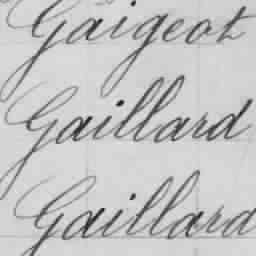 Gaigeot
Gaillard
Gaillard